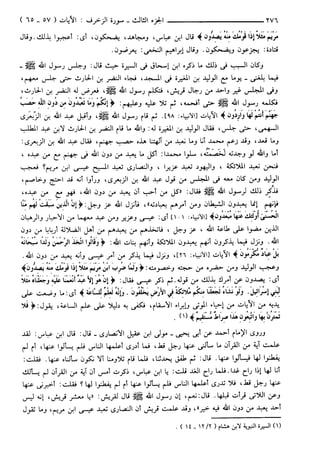 ٢٧٦ الجزء الثالث ـ سورة الزخرف : الآيات ( ٥٧ ـ ٦٥ )
مَرْيَمَ مَثَلًا إِذَا قَوْمُكَ مِنْهُ يَصِدُّونَ ﴾ قال ابن عباس، ومجاهد، يضحكون، أي: أعجبوا بذلك. وقال
قتادة: يجزعون ويضحكون. وقال إبراهيم النخعي: يعرضون.
وكان السبب في ذلك ما ذكره ابن إسحاق في السيرة حيث قال: وجلس رسول الله ﷺ ـ
فيما بلغني ـ يوما مع الوليد بن المغيرة في المسجد، فجاء النضر بن الحارث حتى جلس معهم،
وفي المجلس غير واحد من رجال قريش، فتكلم رسول الله ﷺ فعرض له النضر بن الحارث،
فكلمه رسول الله ﷺ حتى أفحمه، ثم تلا عليه وعليهم: ﴿ إِنَّكُمْ وَمَا تَعْبُدُونَ مِن دُونِ اللَّهِ حَصَبُ
جَهَنَّمَ أَنتُمْ لَهَا وَارِدُونَ ﴾ الآيات [الأنبياء: ٩٨]. ثم قام رسول الله ﷺ، وأقبل عبد الله بن الزبعرى
السهمي، حتى جلس، فقال الوليد بن المغيرة له: والله ما قام النضر بن الحارث لابن عبد المطلب
وما قعد، وقد زعم محمد أنا وما نعبد من آلهتنا هذه حصب جهنم. فقال عبد الله بن الزبعرى:
أما والله لو وجدته لخصمته، سلوا محمدا: أكل ما يعبد من دون الله في جهنم مع من عبده،
فنحن نعبد الملائكة، واليهود تعبد عزيرا، والنصارى تعبد المسيح عيسى ابن مريم؟ فعجب
الوليد ومن كان معه في المجلس من قول عبد الله بن الزبعرى، ورأوا أنه قد احتج وخاصم،
فذكر ذلك لرسول الله ﷺ فقال: «كل من أحب أن يعبد من دون الله، فهو مع من عبده،
فإنهم إنما يعبدون الشيطان ومن أمرهم بعبادته»، فأنزل الله عز وجل: ﴿ إِنَّ الَّذِينَ سَبَقَتْ لَهُم مِّنَّا
الْحُسْنَىٰ أُولَٰئِكَ عَنْهَا مُبْعَدُونَ ﴾ [الأنبياء: ١٠١] أي: عيسى وعزير ومن عبد معهما من الأحبار والرهبان
الذين مضوا على طاعة الله، عز وجل، فاتخذهم من يعبدهم من أهل الضلالة أربابا من دون
الله. ونزل فيما يذكرون أنهم يعبدون الملائكة وأنهم بنات الله: ﴿ وَقَالُوا اتَّخَذَ الرَّحْمَٰنُ وَلَدًا سُبْحَانَهُ
بَلْ عِبَادٌ مُّكْرَمُونَ ﴾ الآيات [الأنبياء: ٢٦]، ونزل فيما يذكر من أمر عيسى وأنه يعبد من دون الله.
وعجب الوليد ومن حضره من حجته وخصومته: ﴿ وَلَمَّا ضُرِبَ ابْنُ مَرْيَمَ مَثَلًا إِذَا قَوْمُكَ مِنْهُ يَصِدُّونَ ﴾
أي: يصدون عن أمرك بذلك من قوله. ثم ذكر عيسى فقال: ﴿ إِنْ هُوَ إِلَّا عَبْدٌ أَنْعَمْنَا عَلَيْهِ وَجَعَلْنَاهُ مَثَلًا
لِّبَنِي إِسْرَائِيلَ. وَلَوْ نَشَاءُ لَجَعَلْنَا مِنكُم مَّلَائِكَةً فِي الْأَرْضِ يَخْلُفُونَ. وَإِنَّهُ لَعِلْمٌ لِّلسَّاعَةِ ﴾ أي: ما وضعت على
يديه من الآيات من إحياء الموتى وإبراء الأسقام، فكفى به دليلا على علم الساعة، يقول: ﴿ فَلَا
تَمْتَرُنَّ بِهَا وَاتَّبِعُونِ هَٰذَا صِرَاطٌ مُّسْتَقِيمٌ ﴾ (١) .
وروى الإمام أحمد عن أبي يحيى ـ مولى ابن عقيل الأنصاري ـ قال: قال ابن عباس: لقد
علمت آية من القرآن ما سألني عنها رجل قط، فما أدري أعلمها الناس فلم يسألوا عنها، أم لم
يفطنوا لها فيسألوا عنها. قال: ثم طفق يحدثنا، فلما قام تلاومنا ألا نكون سألناه عنها. فقلت:
أنا لها إذا راح غدا. فلما راح الغد قلت: يا ابن عباس، ذكرت أمس أن آية من القرآن لم يسألك
عنها رجل قط، فلا تدري أعلمها الناس فلم يسألوا عنها أم لم يفطنوا لها؟ فقلت: أخبرني عنها
وعن اللاتي قرأت قبلها. قال: نعم، إن رسول الله ﷺ قال لقريش: «يا معشر قريش، إنه ليس
أحد يعبد من دون الله فيه خير»، وقد علمت قريش أن النصارى تعبد عيسى ابن مريم، وما تقول
(١) السيرة النبوية لابن هشام ( ١٢/٢ ـ ١٤ ) .